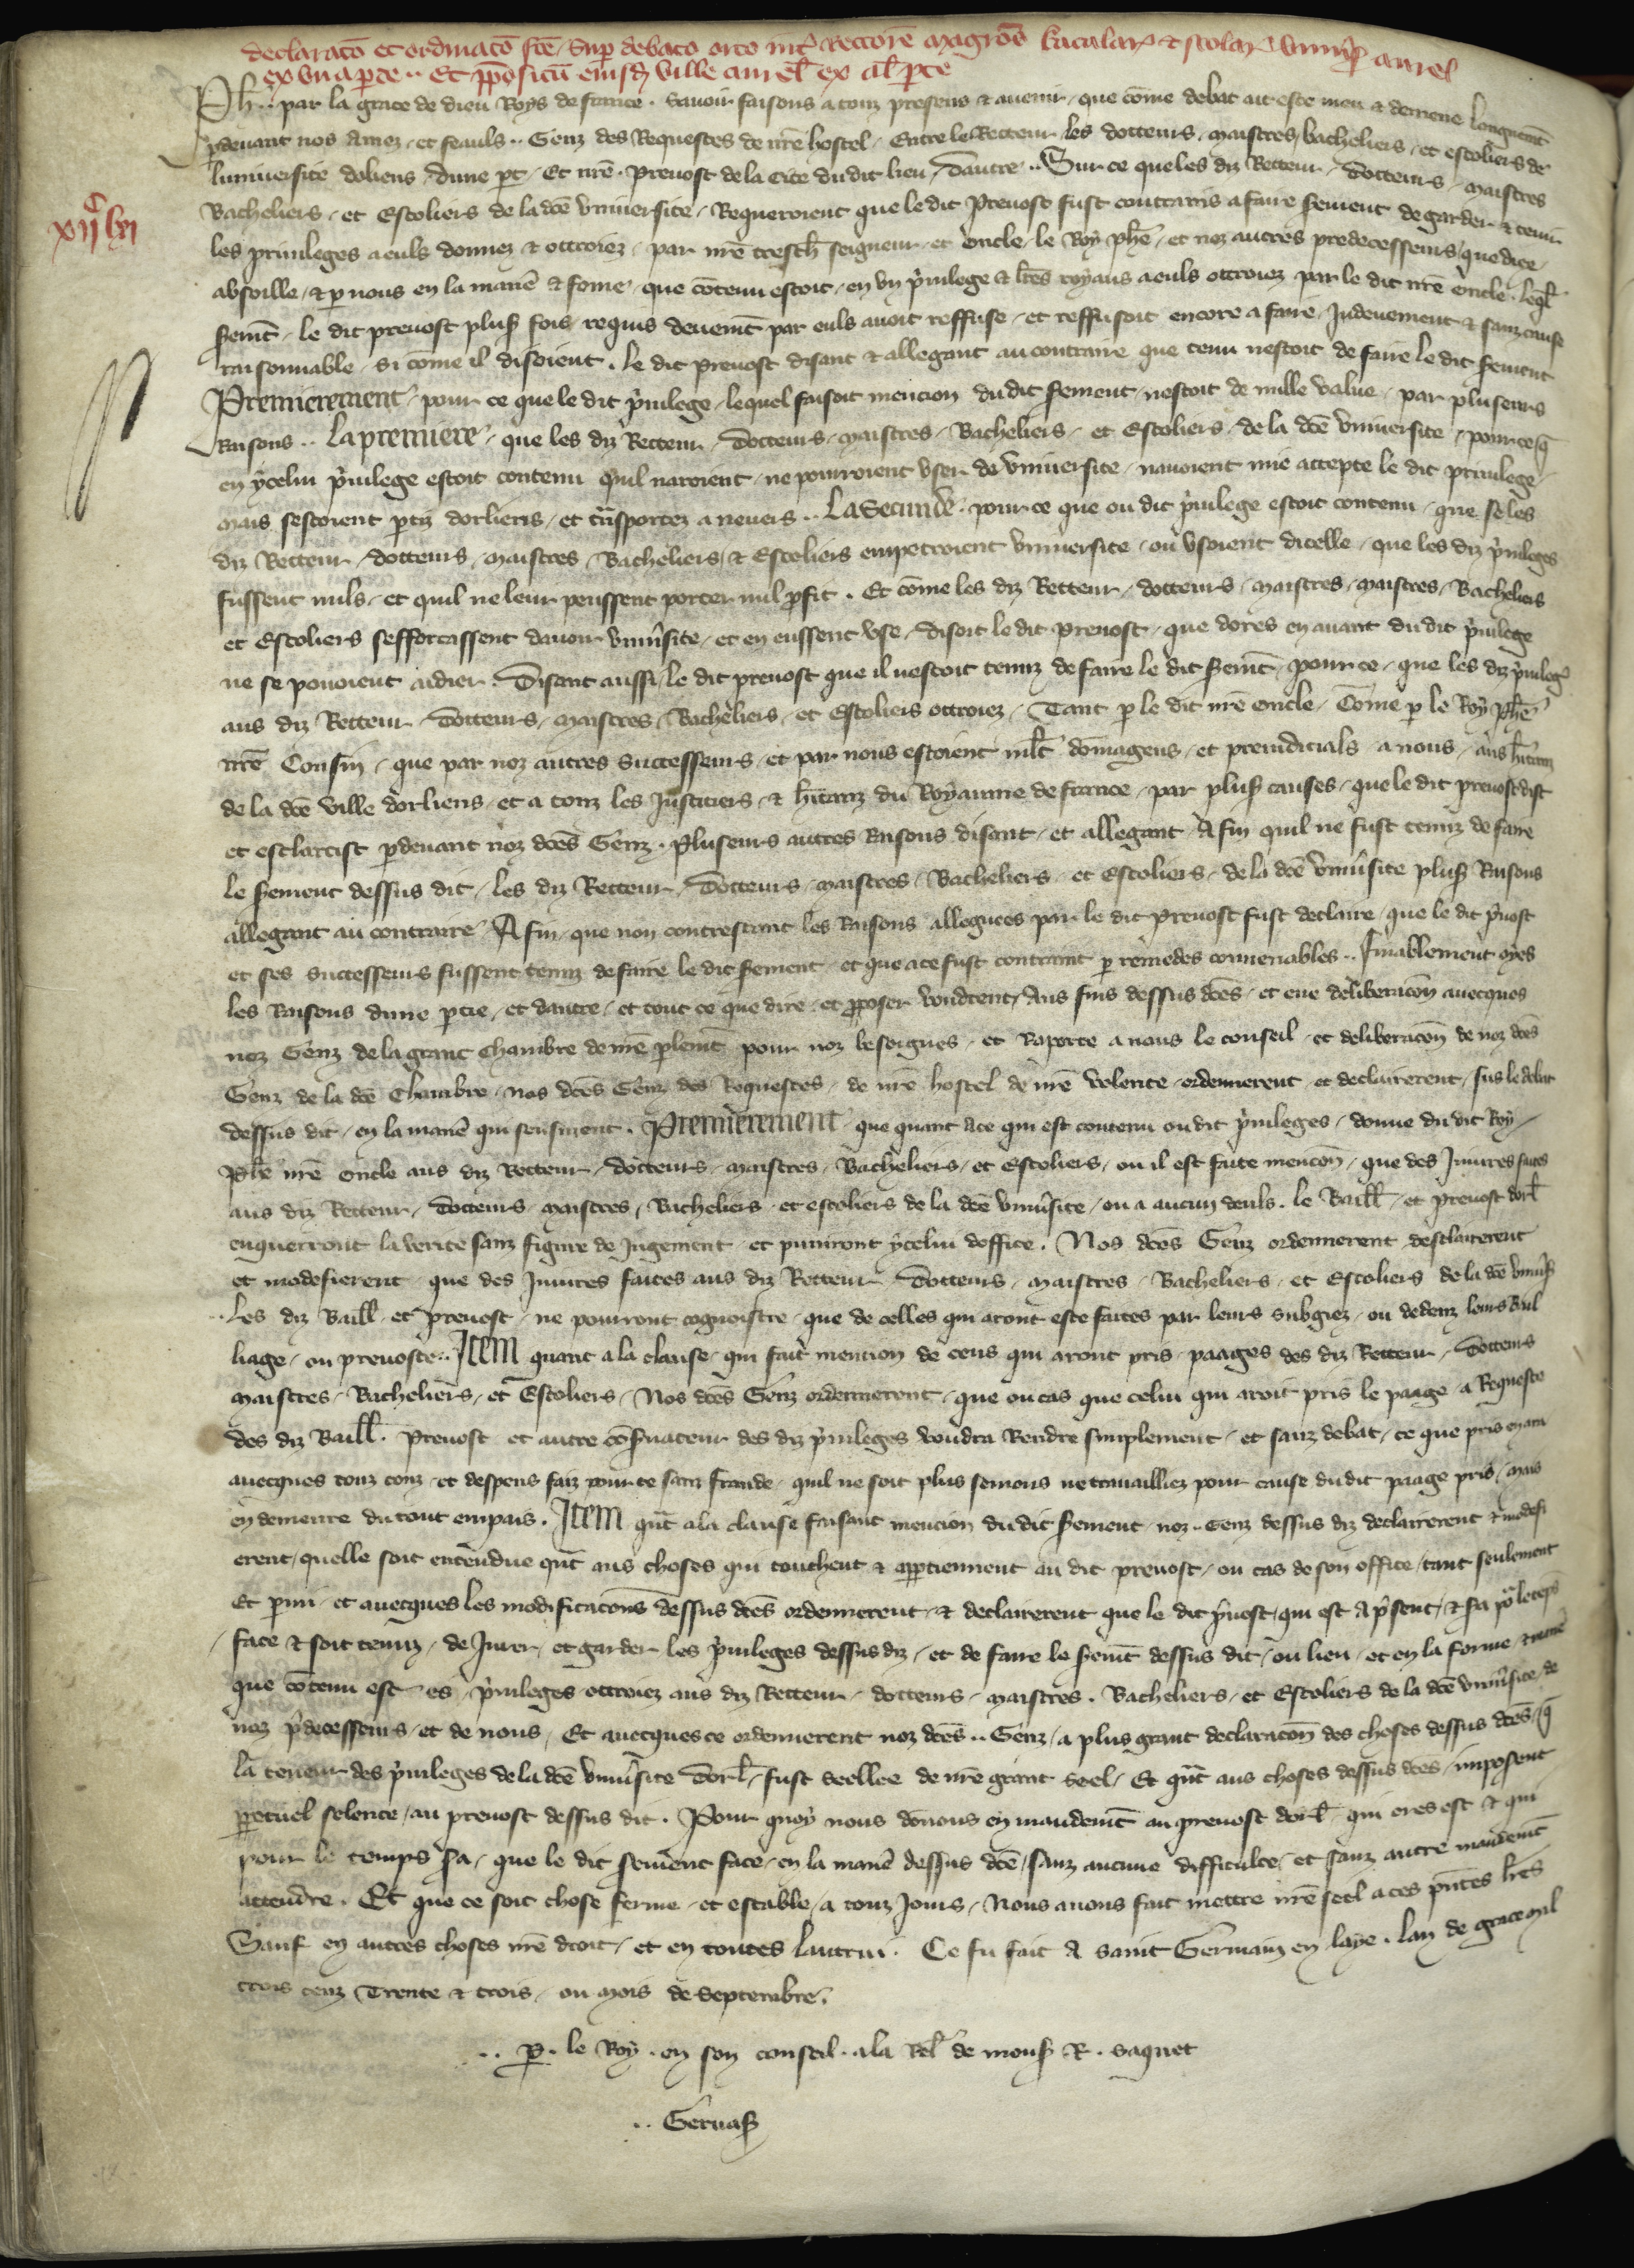 declaracō et ordinacō fcē sup debato orto int Rectorē magrōs bacalar et scolar vniuˀs aurel
ex vna parte .. Et ppositū eiusd ville aurel ex al pte
xijᶜ lvj
Ph .. par la grace de dieu Roys de france . sauoir faisons a touz presens & auenir / que cōme debat ait este meu & demene longuemt
pdeuant nos amez / et feauls .. Genz des Requestes de nrē hostel / Entre le Recteur / les docteurs / maistres / bacheliers / et escoliers de
luniuersite dorliens / dune pt / Et nrē prevost de la cite dudit lieu / dautre .. Sur ce que les diz Recteur / docteurs / maistres
Bacheliers / et Escoliers de la dcē vniuersite / Requeroient que le dit prevost fust contrains a faire serment de garder & tenir
les priuileges a euls donnez & ottroiez / par nrē tresch seigneur et oncle / le Roy phē / et noz autres predecesseurs / que diex
absoille / & p nous en la manē & forme / que cōtenu estoit / en vn pruilege & lrēs royaus a euls ottroiez par le dit nrē oncle . leql
sermt / le dit prevost plus fois requis deuemt par euls auoit reffuse / et reffusoit encore a faire / Indeuement & sanz cause
raisonnable / si cōme il disoient . le dit prevost disant & allegant au contraire que tenu nestoit de faire le dit serment
Premierement / pour ce que le dit pruilege / lequel faisoit mencion dudit serment / nestoit de nulle value / par pluseurs
Raisons .. La premiere / que les diz Recteur / docteurs / maistres / Bacheliers / et Escoliers / de la dcē vniuersite / pour ce q
en ycelui pruilege estoit contenu quil naroient / ne pourroient vser de vniuersite / nauoient mie accepte le dit priuilege /
mais sestoient ptiz dorliens / et trāsportez a neuers .. La Seconde . pour ce que ou dit pruilege estoit contenu / que se les
diz Recteur / docteurs / maistres / Bacheliers / & Escoliers empetroient vniuersite / ou vsoient dicelle / que les diz pruileges
fussent nuls / et quil ne leur peussent porter nul pfit . Et cōme les diz Recteur / docteurs / maistres / maistres / Bacheliers
et Escoliers sefforcassent dauoir vniuˀsite / et en eussent vse / disoit le dit prevost / que dores en auant du dit pruilege
ne se pouoient aidier . Disant aussi / le dit prevost que il nestoit tenuz de faire le dit sermt / pour ce / que les diz pruileg
aus diz Recteur / docteurs / maistres / Bacheliers / et Escoliers ottroiez / Tant p le dit nrē oncle / Cōme p le Roy phē
nrē Cousin / que par noz autres successeurs / et par nous estoient mlt dōmageus / et preiudicials a nous / aus hītanz
de la dcē ville dorliens / et a touz les Justiciers / & hītanz du Royaume de france / par plus causes / que le dit prevost dist
et esclarcist pdeuant noz dcēs Genz . Pluseurs autres Raisons disant / et allegant / A fin quil ne fust tenuz de faire
le serment dessus dit / les diz Recteur / docteurs / maistres / Bacheliers / et Escoliers / de la dcē vniuˀsite plus Raisons
allegant au contraire A fin / que non contrestant les Raisons alleguees par le dit prevost fust declaire / que le dit pruost
et ses successeurs fussent tenuz de faire le dit serment / et que a ce fust contraint p remedes conuenables .. Finablement oyes
les Raisons dune ptie / et dautre / et tout ce que dire / et pposer voudrent / Aus fins dessus dcēs / et eue deliberacōn auecques
noz Genz de la grant chambre de nrē plemt pour noz besoignes / et Raporte a nous le conseil / et deliberacōn de noz dcēs
Genz de la dcē Chambre / nos dcēs Genz des Requestes / de nrē hostel de nrē volente / ordennerent / et declairerent / sus le debat
dessus dit / en la manē qui sensiuent . Premierement / que quant a ce qui est contenu ou dit pruileges / donne du dit Roy /
Phē nrē oncle aus diz Recteur / docteurs / maistres / Bacheliers / et Escoliers / ou il est faite mencōn / que des Iniures faites
aus diz Recteur / docteurs / maistres / Bacheliers / et escoliers de la dcē vniuˀsite / ou a aucun deuls . le Baill / et prevost dorl
enquerront la verite sanz figure de Jugement / et puniront ycelui doffice . Nos dcēs Genz ordennerent / desclairerent
et modefierent / que des Iniures faites aus diz Recteur / docteurs / maistres / Bacheliers / et Escoliers de la dcē vniuˀs
.. Les diz Baill et prevost / ne pourront cognoistre / que de celles qui aront este faites par leurs subgiez / ou dedenz leurs Bail
liage / ou prevoste .. Item quant a la clause / qui fait mencion de ceus qui aront pris / paages des diz Recteur / docteurs
maistres / Bacheliers / et Escoliers / Nos dcēs Genz ordennerent / que ou cas que celui qui aroit pris le paage a Requeste
des diz Baill . Prevost et autre cōseruateur des diz pruileges voudra Rendre simplement / et sanz debat / ce que pris en ara
auecques touz couz / et despens faiz pour ce sanz fraude / quil ne soit plus semons ne trauailliez pour cause du dit paage pris / mais
en demeure du tout empais . Item qnt a la clause faisant mencion du dit serment / noz .. Genz dessus diz declairerent & modefi
erent / quelle soit entendue qnt aus choses qui touchent & appartiennent au dit prevost / ou cas de son office / tant seulement
Et pmi / et auecques les modificacōns dessus dcēs ordennerent / & declairerent que le dit pruost / qui est a psent / & sa por le teps
face & soit tenuz / de Jurer / et garder les pruileges dessus diz / et de faire le sermt dessus dit / ou lieu / et en la forme / & manē
que cōtenu est es / pruileges ottroiez aus diz Recteur / docteurs / maistres . Bacheliers / et Escoliers de la dcē vniuˀsite / de
noz pdecesseurs / et de nous / Et auecques ce ordennerent noz dcēs .. Genz / a plus grant declaracōn des choses dessus dcēs / q
la teneur des pruileges de la dcē vniuˀsite dorl / fust seellee de nrē grant seel / Et qnt aus choses dessus dcēs / imposent
ppetuel selence / au prevost dessus dit . Pour quoy nous donnons en mandemt au prevost dorl / qui ores est & qui
pour le temps sa / que le dit serment face / en la manē dessus dcē / sanz aucune difficulte / et sanz autre mandemt
attendre . Et que ce soit chose ferme / et estable / a touz Jours / Nous auons fait mettre nrē seel a ces pntes lrēs
Sauf en autres choses nrē droit / et en toutes lautrui . Ce fu fait A saint Germain en laye . lan de grace mil
trois cenz Trente & trois / ou mois de septembre .
.. p . le Roy . en son conseil . a la Rel de mons R . saquet
.. Geruas